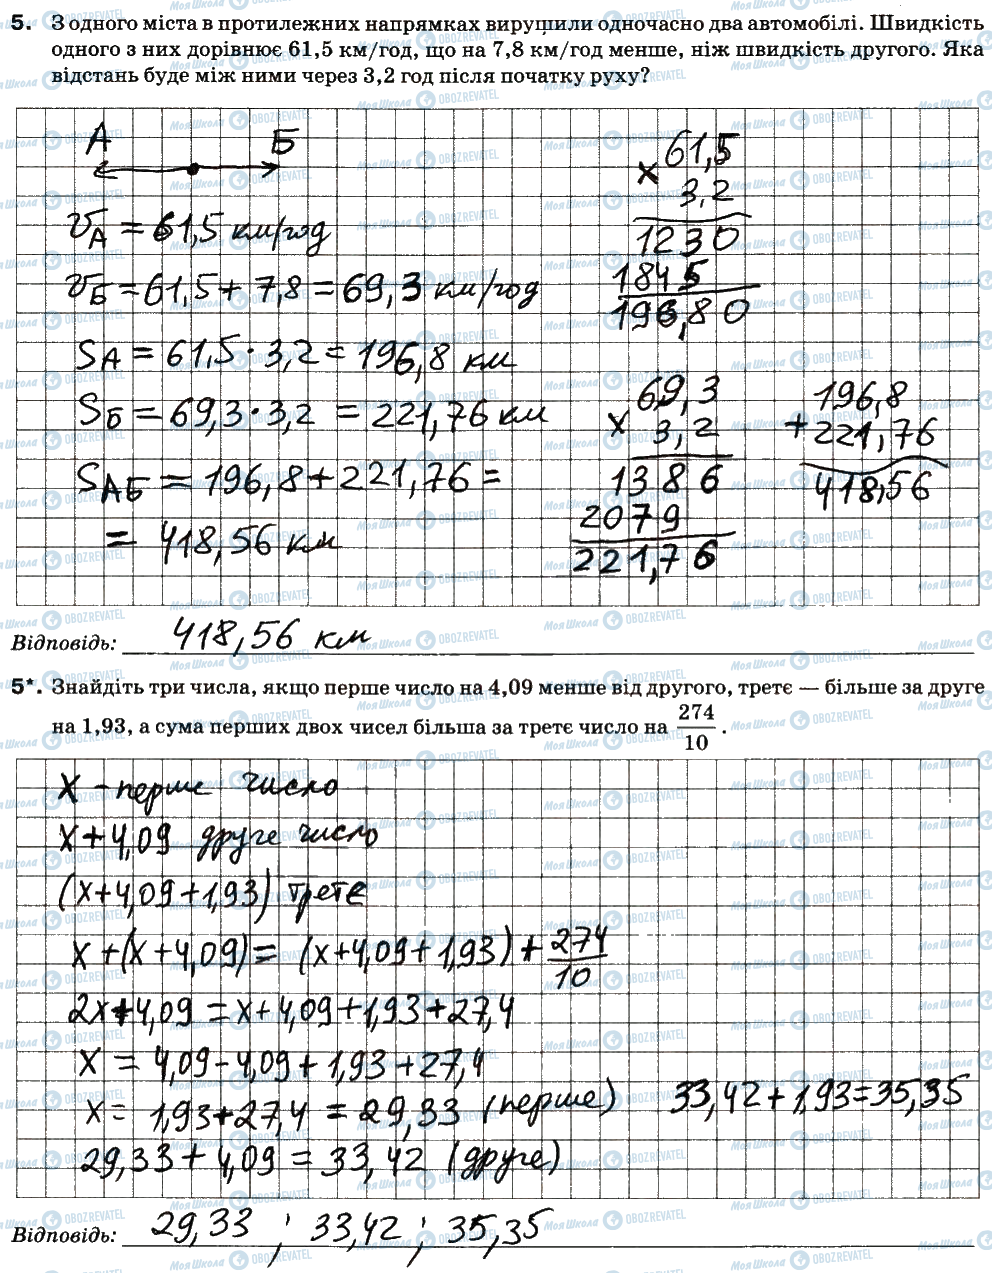 5. З одного міста в протилежних напрямках вирушили одночасно два автомобілі. Швидкість
одного з них дорівнює 61,5 км/год, що на 7,8 км/год менше, ніж швидкість другого. Яка
відстань буде між ними через 3,2 год після початку руху?
А Б
v_А = 61,5 км/год
v_Б = 61,5 + 7,8 = 69,3 км/год
S_А = 61,5 · 3,2 = 196,8 км
S_Б = 69,3 · 3,2 = 221,76 км
S_АБ = 196,8 + 221,76 =
= 418,56 км
61,5
× 3,2
1230
1845
196,80
69,3
× 3,2
1386
2079
221,76
196,8
+ 221,76
418,56
Відповідь: 418,56 км
5*. Знайдіть три числа, якщо перше число на 4,09 менше від другого, третє — більше за друге
на 1,93, а сума перших двох чисел більша за третє число на 274/10 .
x – перше число
x + 4,09 друге число
(x + 4,09 + 1,93) третє
x + (x + 4,09) = (x + 4,09 + 1,93) + 274/10
2x + 4,09 = x + 4,09 + 1,93 + 27,4
x = 4,09 – 4,09 + 1,93 + 27,4
x = 1,93 + 27,4 = 29,33 (перше) 33,42 + 1,93 = 35,35
29,33 + 4,09 = 33,42 (друге)
Відповідь: 29,33 ; 33,42 ; 35,35
МояШкола OBOZREVATEL